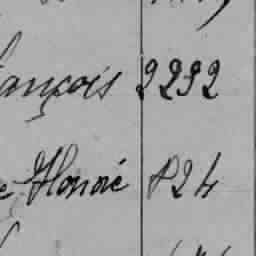 ançois 2292
e Honoré 824